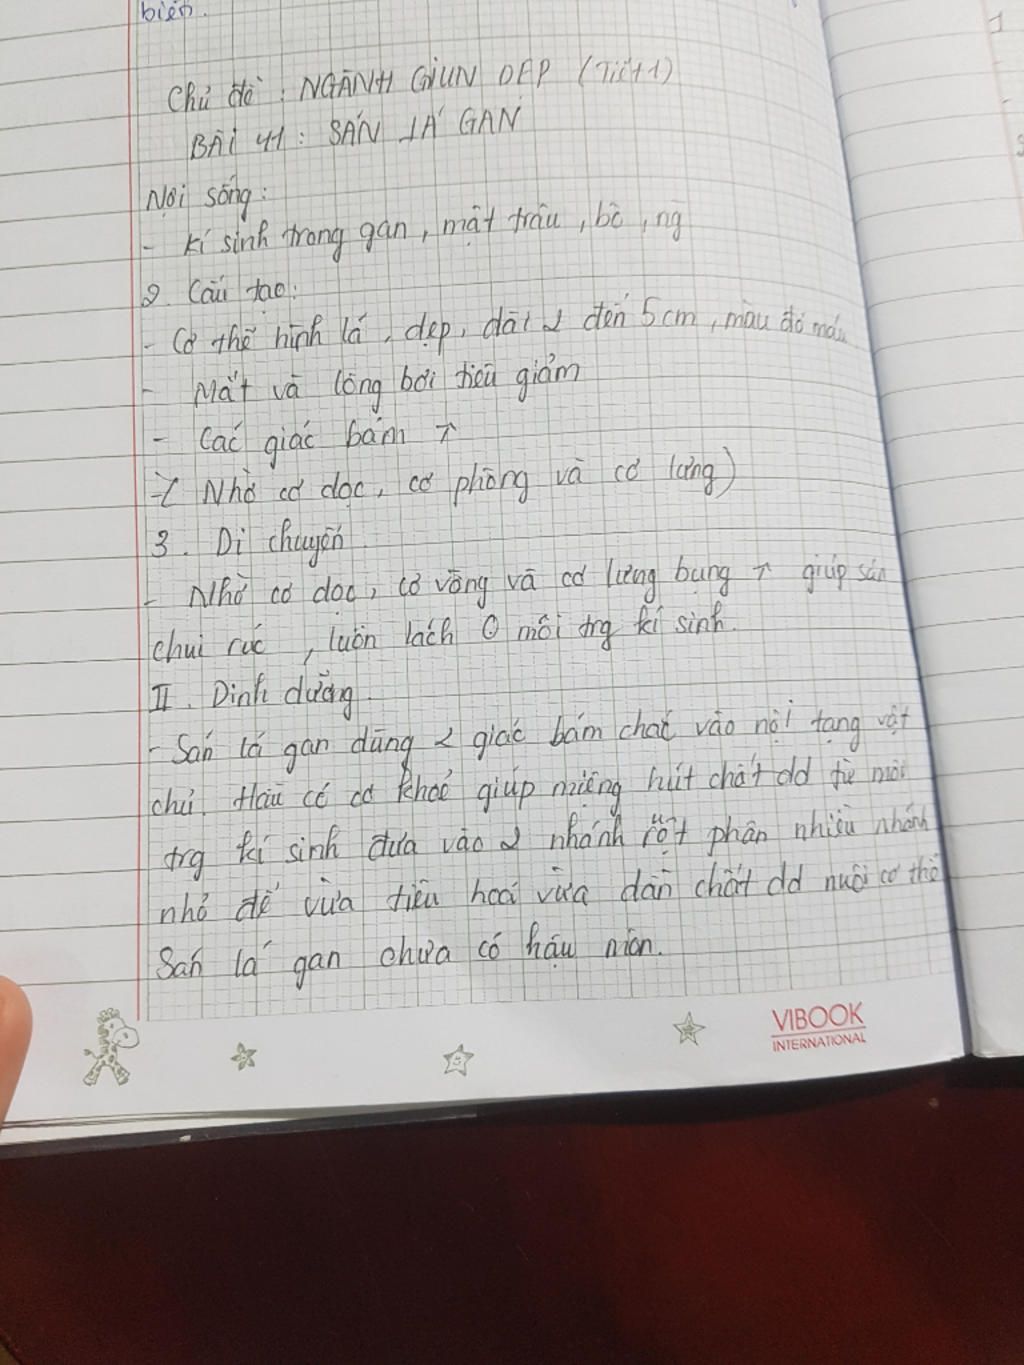 biển.
Chủ đề : NGÀNH GIUN DẸP (Tiết 1)
BÀI 41 : SÁN LÁ GAN
Nơi sống :
- Kí sinh trong gan, mật trâu, bò, ng
2. Cấu tạo:
- Cơ thể hình lá, dẹp, dài 2 đến 5cm, màu đỏ máu
- Mắt và lông bơi tiêu giảm
- Các giác bám ↑
( Nhờ cơ dọc, cơ phòng và cơ lưng)
3. Di chuyển
- Nhờ cơ dọc, cơ vòng và cơ lưng bụng ↑ giúp sán
chui rúc, luồn lách O môi trg kí sinh.
II. Dinh dưỡng.
- Sán lá gan dùng 2 giác bám chắc vào nội tạng vật
chủ. Hầu có cơ khoẻ giúp miệng hút chất dd từ môi
trg kí sinh đưa vào 2 nhánh ruột phân nhiều nhánh
nhỏ để vừa tiêu hoá vừa dẫn chất dd nuôi cơ thể
Sán lá gan chưa có hậu môn.
VIBOOK
INTERNATIONAL